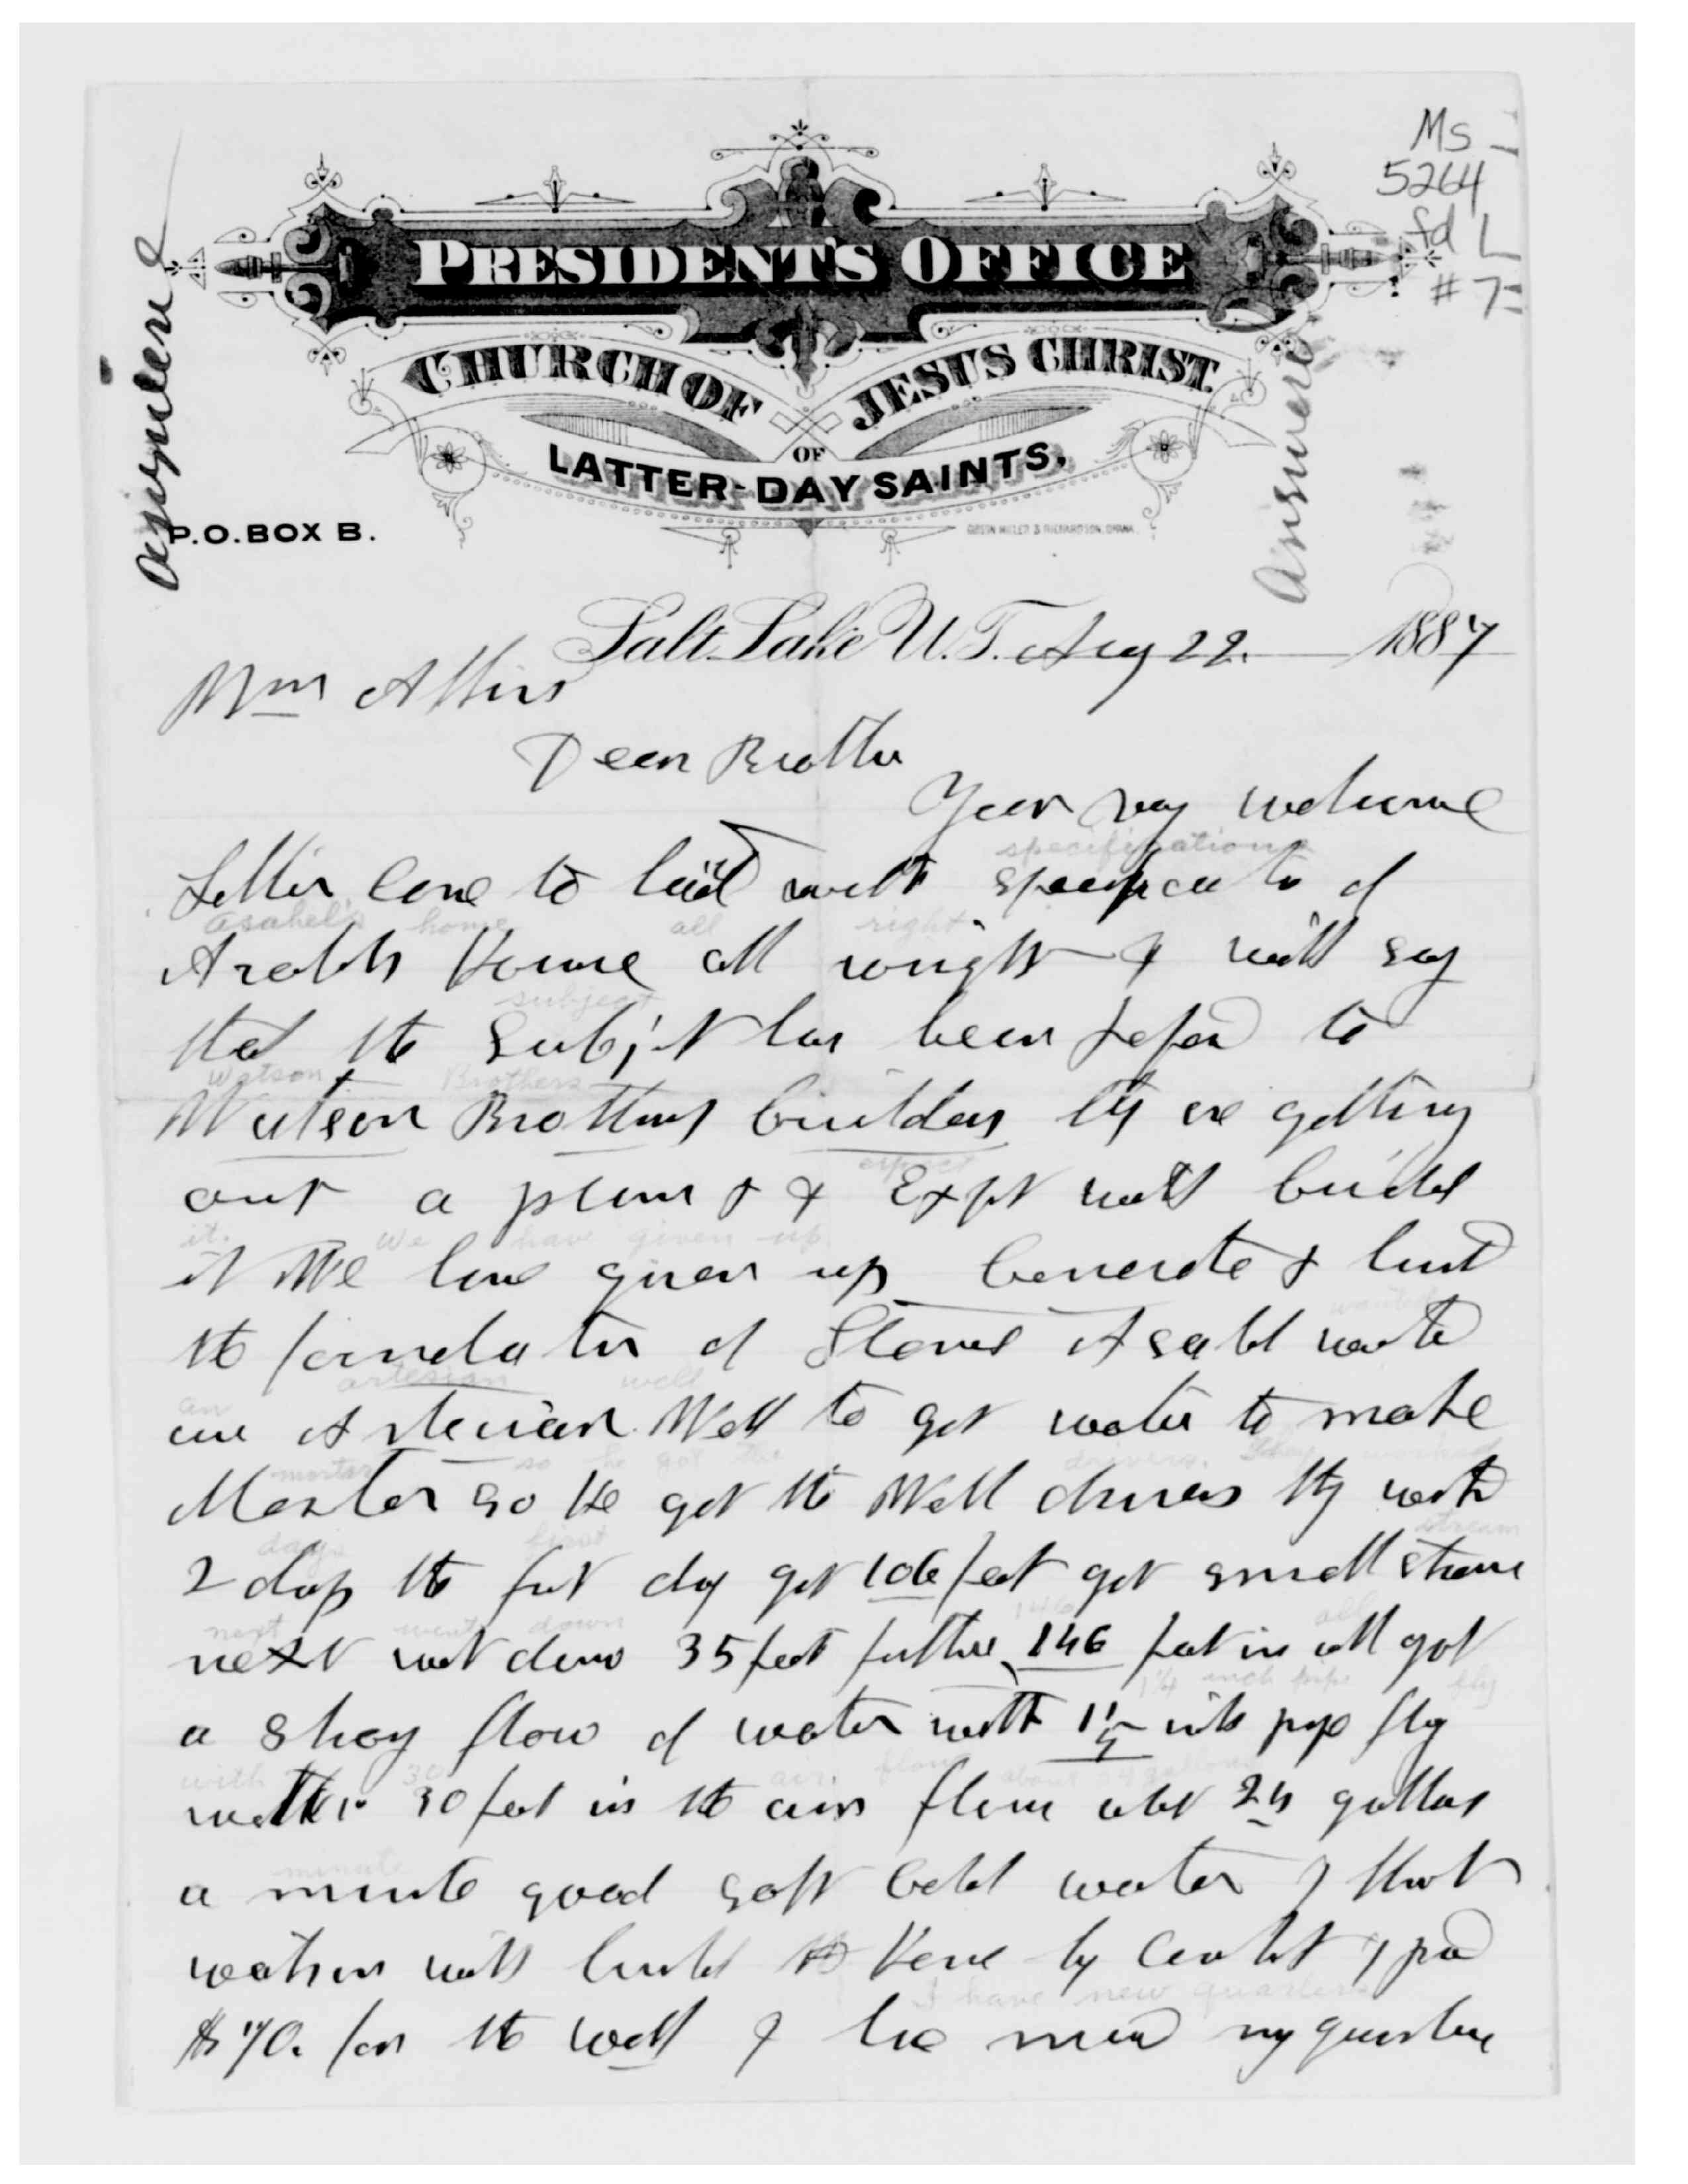 Ms
5264
fd 1
#7
PRESIDENT'S OFFICE
CHURCH OF JESUS CHRIST
OF
LATTER-DAY SAINTS,
P.O. BOX B.
Answered
Salt Lake U.T. Aug 22. 1887
Wm Atkins
Dear Brother
Your very welcome
specifications
Letter Come to hand with specificatn of
Asahel's home all right
Asahels House all wright & will say
subject
that the Subjet has been refered to
Watson Brothers
Watson Brothers builders they are getting
expect
out a plan & Expt will build
it. We have given up
it We have given up Concrete & build
wanted
the foundatin of Stone Asahel wanted
an artesian well
an Artesian Well to get water to make
mortar so he got the drivers. They worked
Mortar so He got the Well drivers they workd
days first stream
2 days the first day got 106 feet got small stream
next went down 146 all
next went down 35 feet further 146 feet in all got
1 1/4 inch pipe fly
a strong flow of water with 1 1/4 inch pipe fly
with 30 air flow about 24 gallons
water 30 feet in the air flow about 24 gallons
minute
a minute good soft Cold water I think
watson will build the House by Contract I paid
I have new quarters
$70. for the well I have moved my quarters